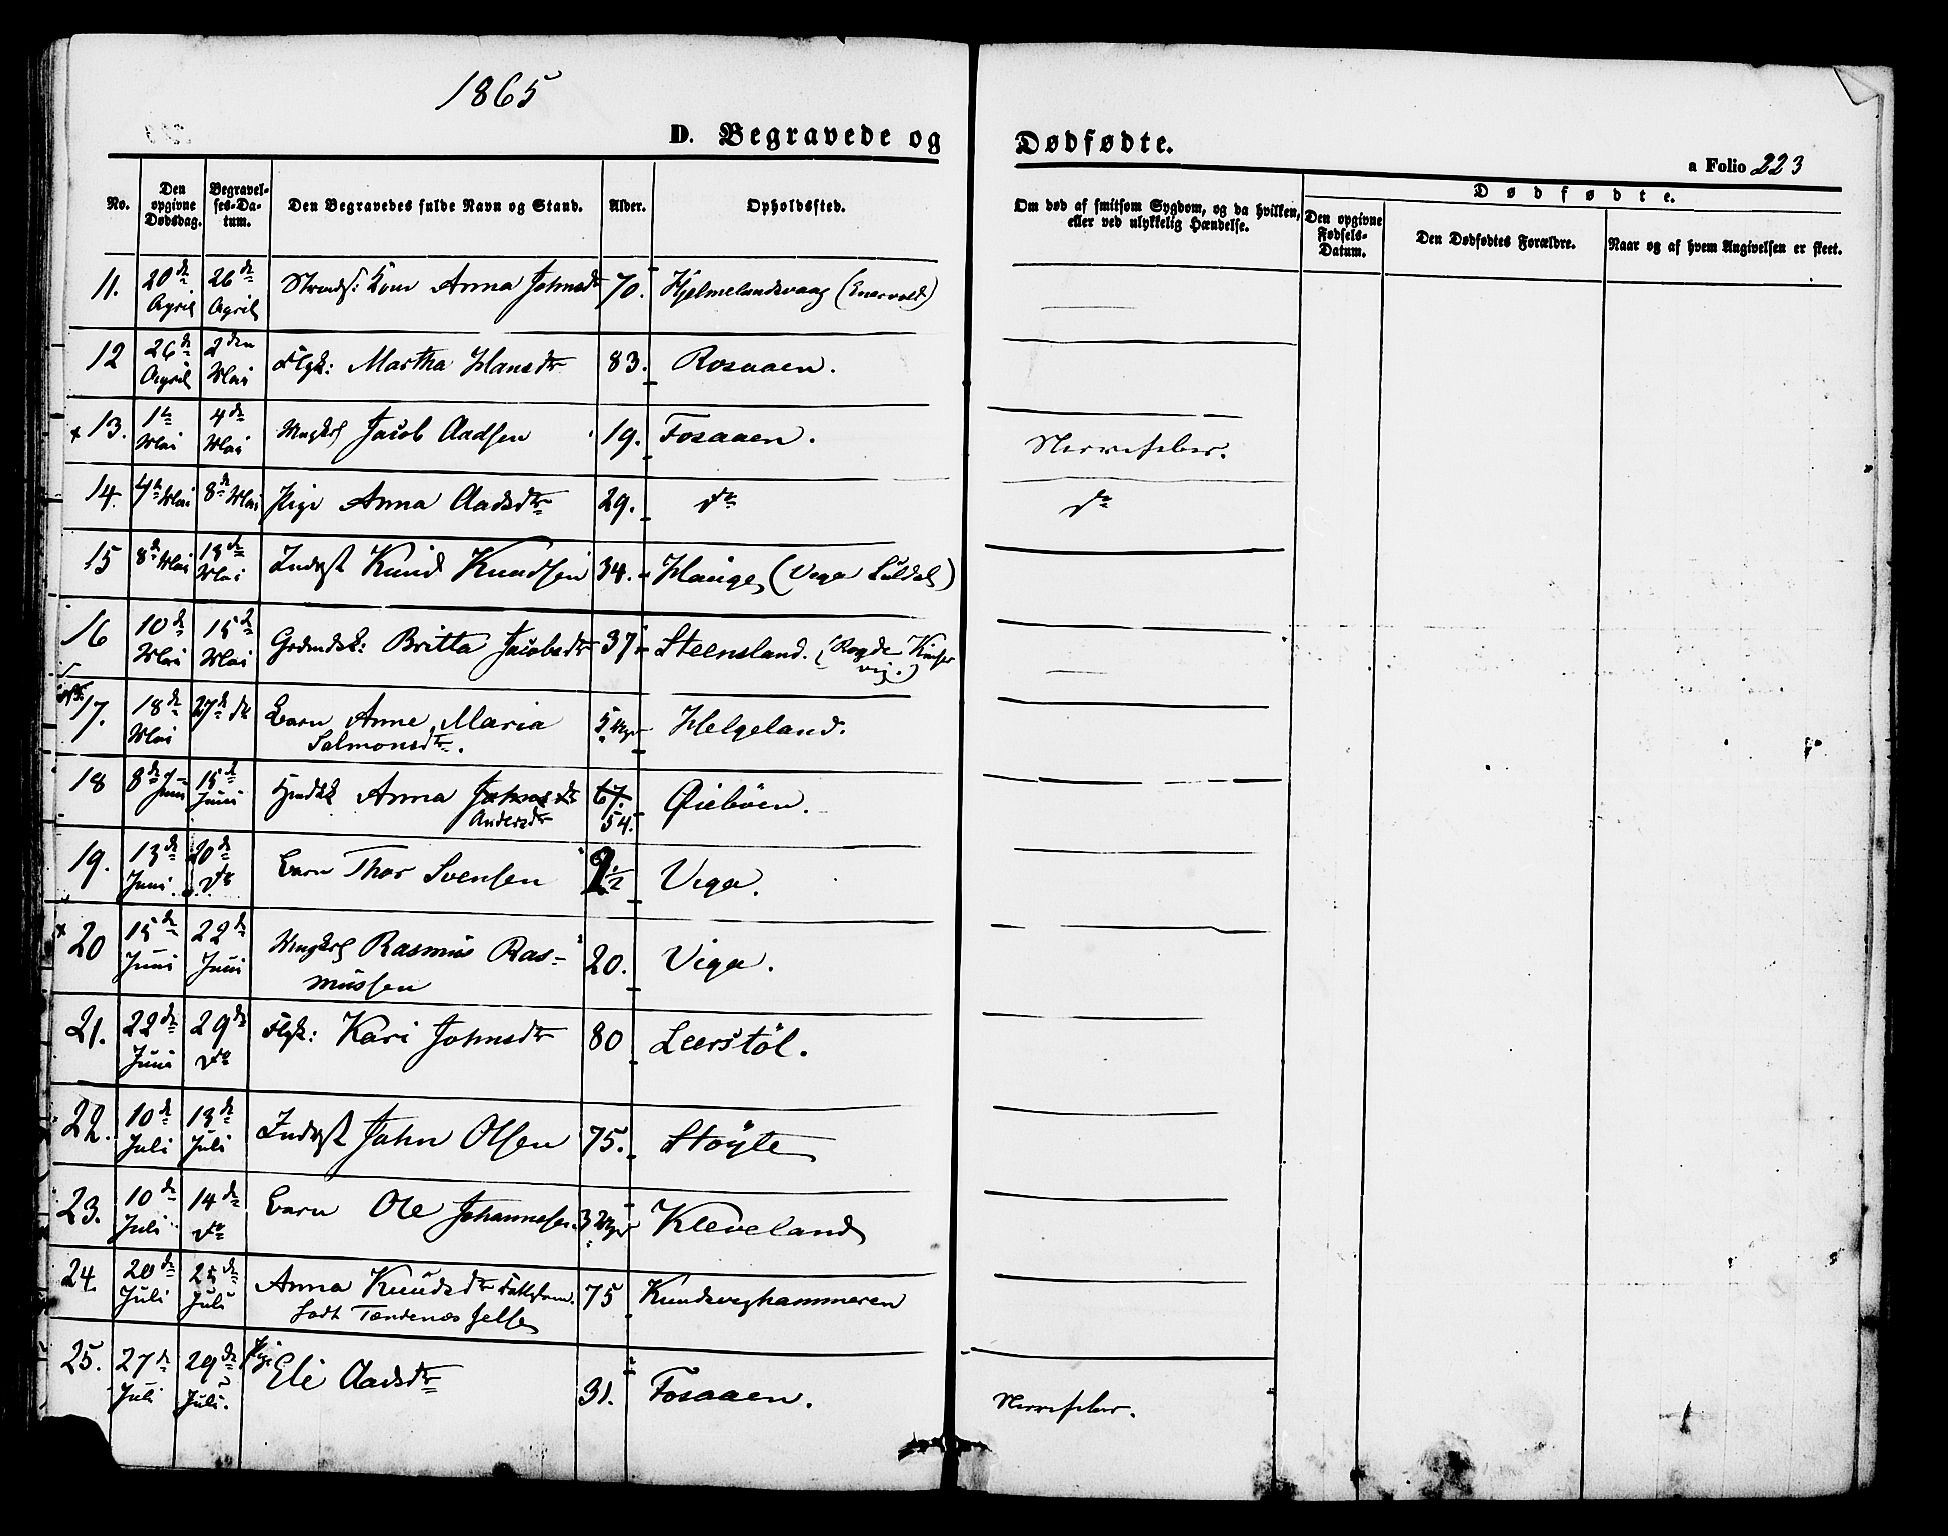 1865
D. Begravede og Dødfødte.
a Folio 223
No.
Den opgivne Dødsdag.
Begravelses-Datum.
Den Begravedes fulde Navn og Stand.
Alder.
Opholdssted.
Om død af smitsom Sygdom, og da hvilken, eller ved ulykkelig Hændelse.
Dødfødte.
Den opgivne Fødsels-Datum.
Den Dødfødtes Forældre.
Naar og af hvem Angivelsen er skeet.
11. 20de April 26de April Anna Johnsdtr 70. Hjelmelandsvaag
12 26de April 2den Mai Flgk: Martha Hansdtr 83. Rosaaen.
13. 1te Mai 4de Mai Ungkrl Jacob Aadsen 19. Fosaaen. Nervefeber.
14. 4de Mai 8de Mai Pige Anna Aadsdtr 29. do do
15 8de Mai 13de Mai Inderst Knud Knudsen 34. Hauge (Viga Suldal)
16 10de Mai 15de Mai Britta Jacobsdtr 37 Steensland.
17. 18de Mai 27de do Barn Anne Maria
Salmonsdtr. 5 Helgeland.
18 8de Juni 15de Juni Anna Johnsdtr 67.
Andersdtr 54. Øiebøen.
19. 13de Juni 20de do Barn Thor Svensen Viga.
20 15de Juni 22de Juni Ungkrl Rasmus Ras-
mussen 20. Viga.
21. 22de Juni 29de do Flgk: Kari Johnsdtr 80 Leerstøl.
22. 10de Juli 13de Juli Inderst John Olsen 75. Støyle
23. 10de Juli 14de do Barn Ole Johannesen 3 Kleveland
24. 20de Juli 25de Juli Anna Knudsdtr 75
25. 27de Juli 29de Juli. Pige Eli Aadsdtr 31. Fosaaen. Nervefeber.